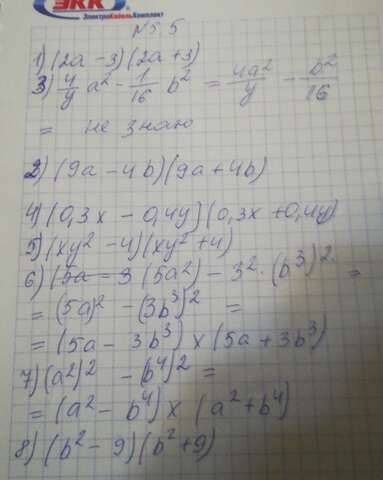 ЭКК
ЭлектроКабельКомплект
№55
1) (2a - 3)(2a + 3)
3) 4/y a² - 1/16 b² = 4a²/y - b²/16
= не знаю
2) (9a - 4b)(9a + 4b)
4) (0,3x - 0,4y)(0,3x + 0,4y)
5) (xy² - 4)(xy² + 4)
6) (5a - 3 (5a²) - 3² · (b³)² =
= (5a)² - (3b³)² =
= (5a - 3b³) × (5a + 3b³)
7) (a²)² - (b⁴)² =
= (a² - b⁴) × (a² + b⁴)
8) (b² - 9)(b² + 9)